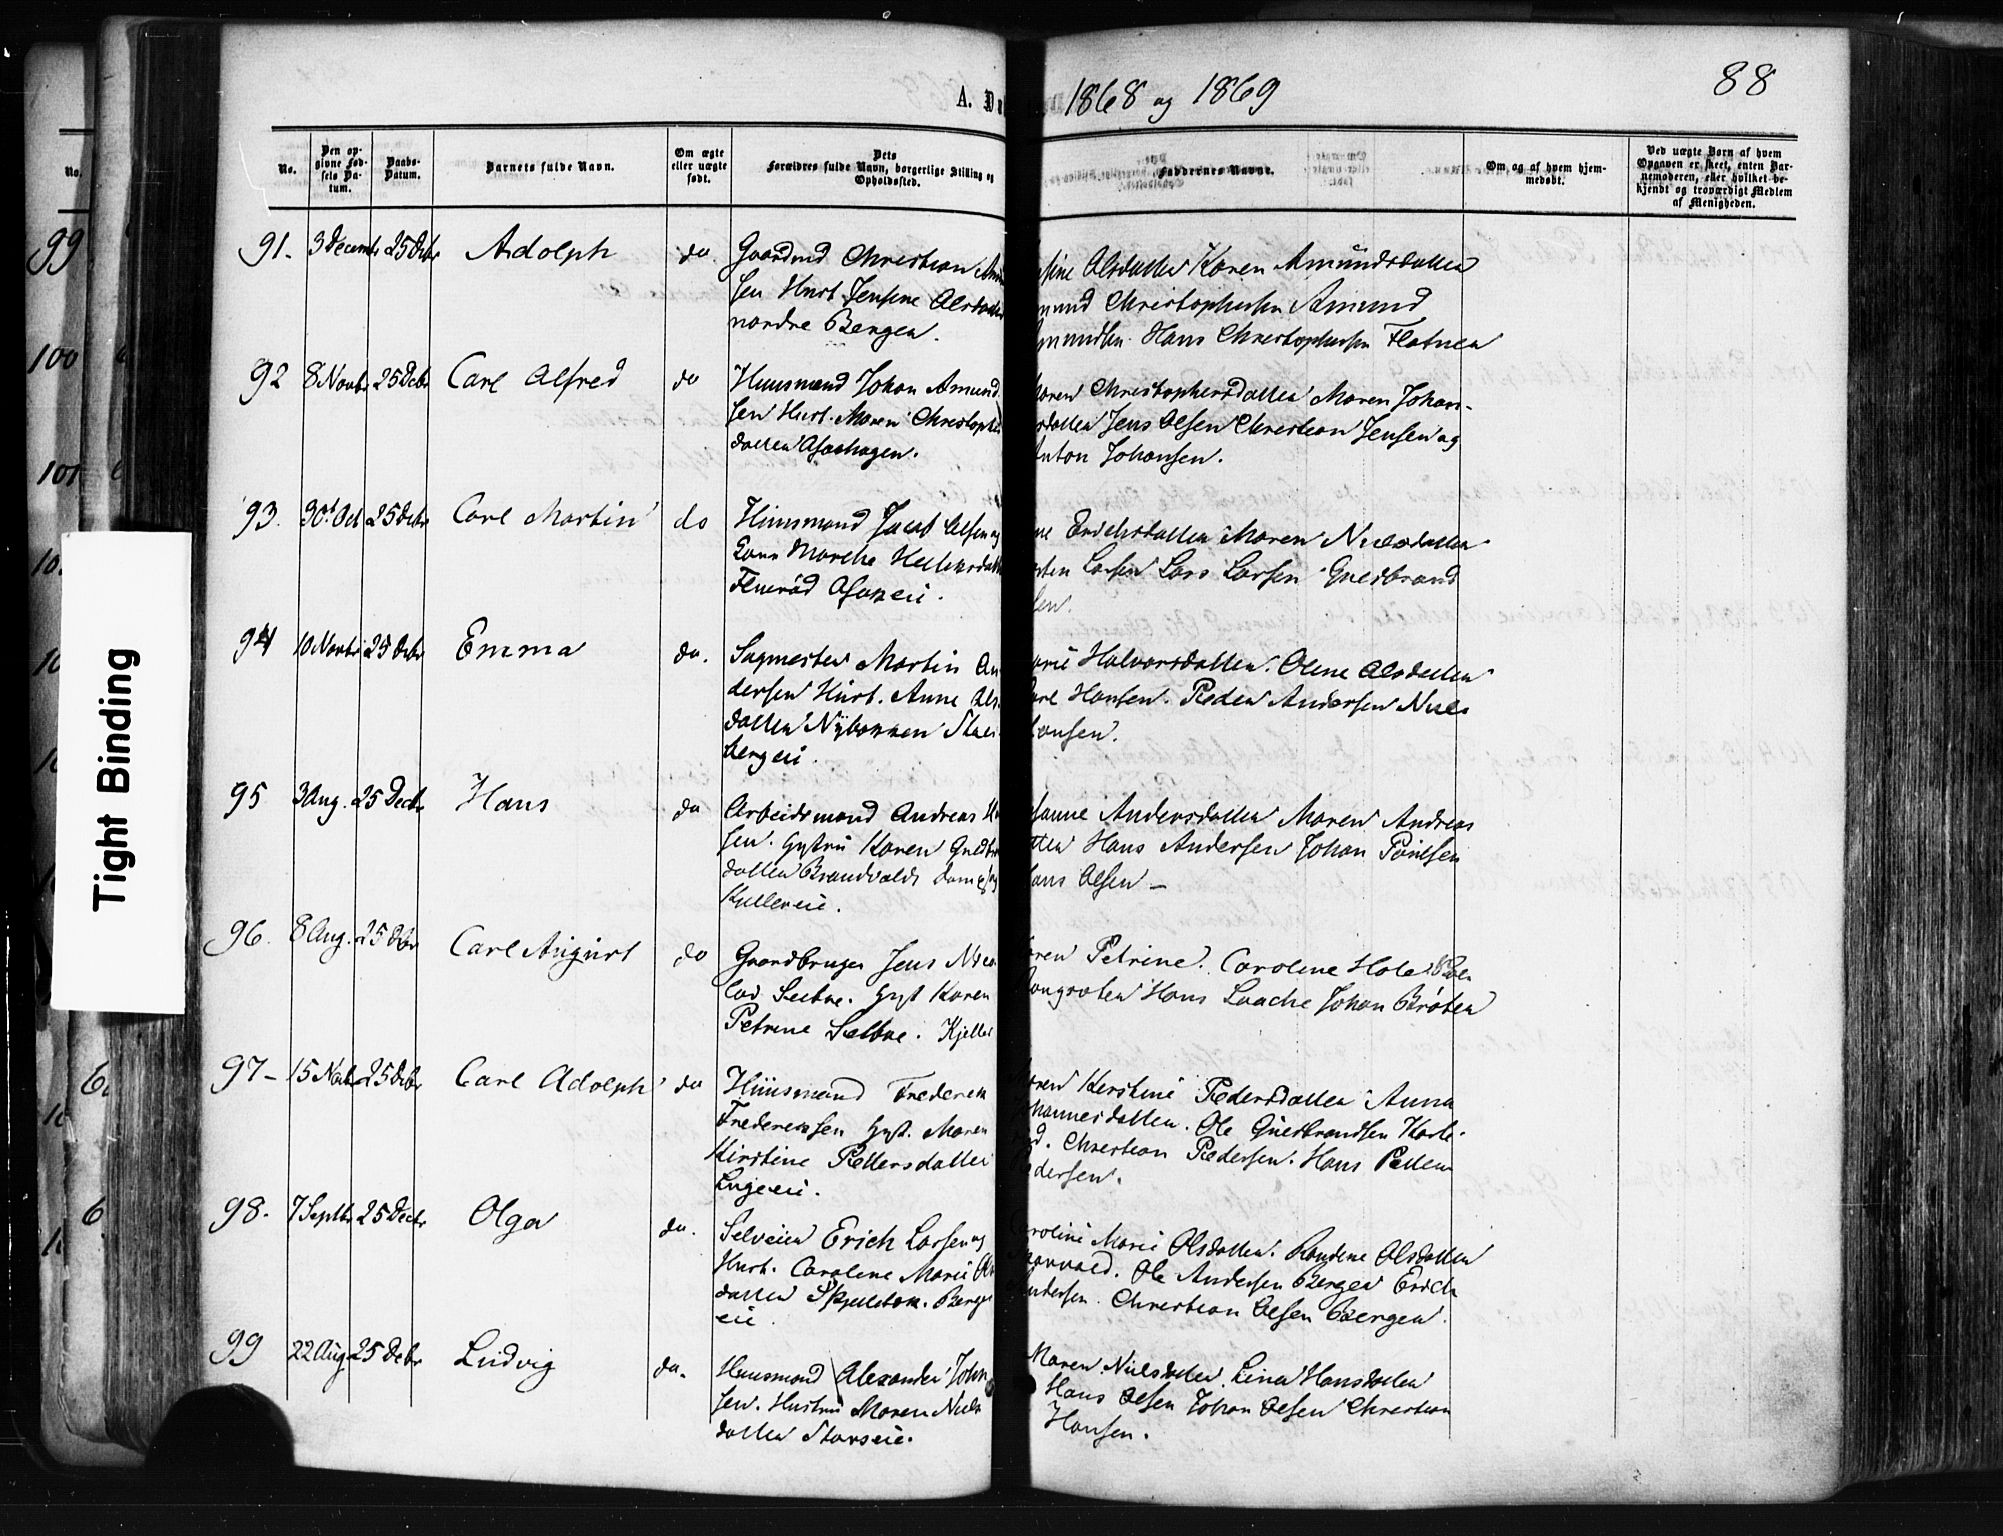 1868 og 1869
88
A. Dø
No.
No.
Den op-
givne Fød-
sels Da-
tum.
Daabs-
Datum.
Barnets fulde Navn.
Om ægte
eller uægte
født.
Dets
Forældres fulde Navn, borgerlige Stilling og
Opholdssted.
Faddernes Navne.
Om og af hvem hjem-
medøbt.
Ved uægte Børn af hvem
Opgaven er skeet, enten Bar-
nemoderen, eller hvilket be-
kjendt og troværdigt Medlem
af Menigheden.
99
100
101
Tight Binding
91. 3 Decembr 25 Debr Adolph do. Gaardmd Christian Am
sen Hust. Jensine Olsdatter
nordre Bergen.
sine Olsdatter Karen Amundsdatter
mund Christophersen Amund
mundsen. Hans Christophersen
92 8 Novbr 25 Debr Carl Alfred do Huusmand Johan Amund
sen Hust. Maren Christophers
datter
aren Christophersdatter Maren Johans-
datter Jens Olsen Christian Jensen og
Anton Johansen.
93. 30t Oct 25 Debr Carl Martin do Huusmand Jacob Olsen og
Kone Marthe
ne Erichsdatter Maren Nielsdatter
sten Larsen Lars Larsen Guldbrand
sen.
94 10 Novbr 25 Debr Emma do. Sagmester Martin An
dersen Hust. Anne Ols
datter Nybakken
bergeie.
arie Halvorsdatter. Oline Olsdatter
arl Hansen. Peder Andersen Niels
Hansen.
95 3 Aug. 25 Decbr Hans do Arbeidsmand Andreas Ha
sen. Hustru Karen Guldbr
datter Brandvalds
hanne Andersdatter Maren Andreas
tter Hans Andersen Johan Poulsen
Hans Olsen —
96. 8 Aug. 25 Dbr Carl August do Gaardbruger Jens Nico
lai Sæther. Hust Karen
Petrine Sæther. Kjeller
aren Petrine. Caroline Hole
Hans Laache Johan Bråten
97- 15 Novbr 25 Debr Carl Adolph do Huusmand Frederik
Frederiksen Hust. Maren
Kirstine Pettersdatter
aren Kirstine Pedersdatter Anna
ohannesdatter. Ole Guldbrandsen
Christian Pedersen. Hans Petter
Pedersen.
98. 7 Septbr 25 Decbr Olga do. Selveier Erich Larsen og
Hust. Caroline Marie Ols
datter Berge
eie.
aroline Marie Olsdatter. Randine Olsdatter
Ole Andersen Bergen Erich
Andersen. Christian Olsen Bergen.
99 22 Aug 25 Debr Ludvig do. Huusmand Alexander Johan
sen. Hustru Maren Niels
datter
Maren Nielsdatter Lina Hansdatter
Hans Olsen Johan Olsen Christian
Hansen.